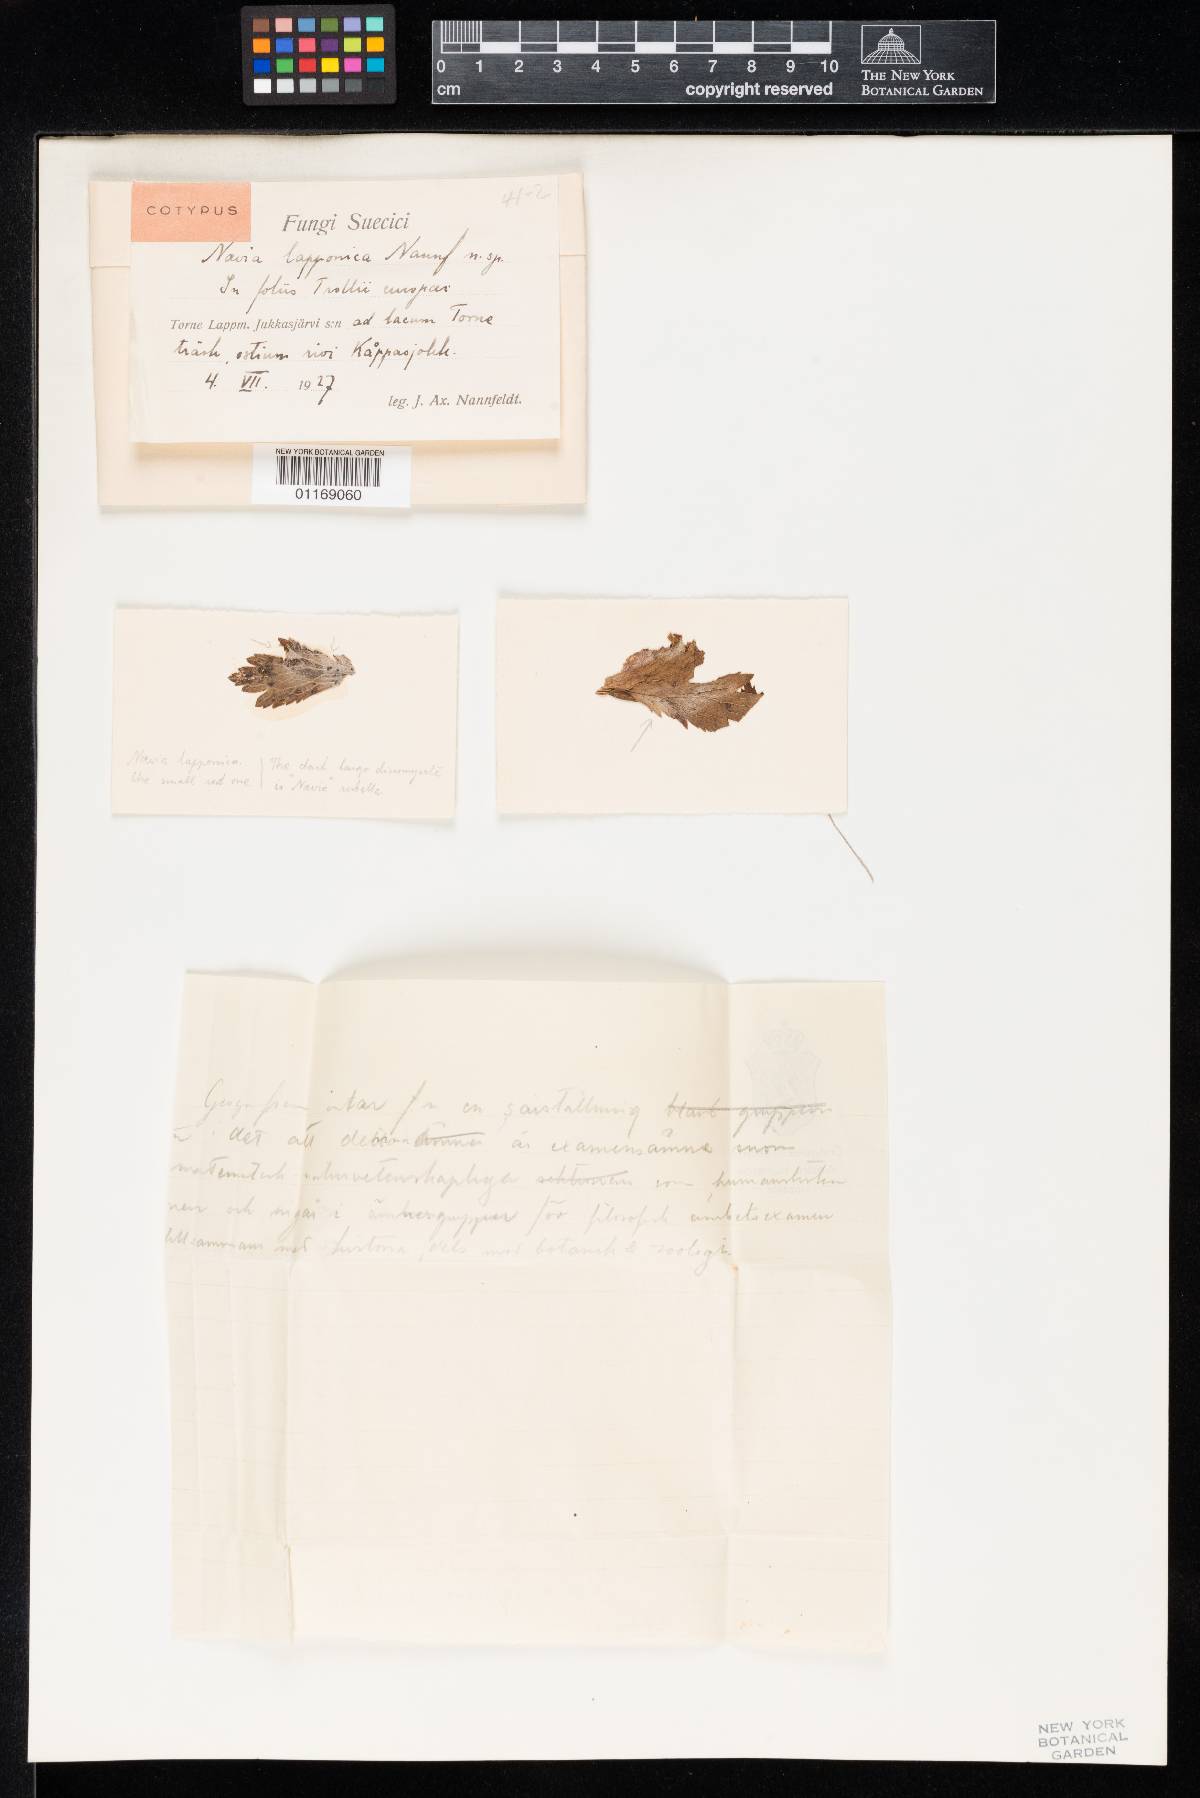 0 1 2 3 4 5 6 7 8 9 10
cm
copyright reserved
THE NEW YORK
BOTANICAL GARDEN
COTYPUS
41-2
Fungi Suecici
Nævia lapponica Nannf n. sp.
In foliis Trollii europæi
Torne Lappm. Jukkasjärvi s:n ad lacum Torne
träsk, ostium rivi Kåppasjokk.
4. VII. 1927
leg. J. Ax. Nannfeldt.
NEW YORK BOTANICAL GARDEN
01169060
Nævia lapponica. The dark large discomycete
the small red one is "Nævia"
intar en särställning
det att är examensämne inom
naturvetenskapliga sektionen som humanistiska
och ingår i ämnesgrupper för filosofisk ämbetsexamen
tillsammans med historia, dels med botanik & zoologi.
NEW YORK
BOTANICAL
GARDEN